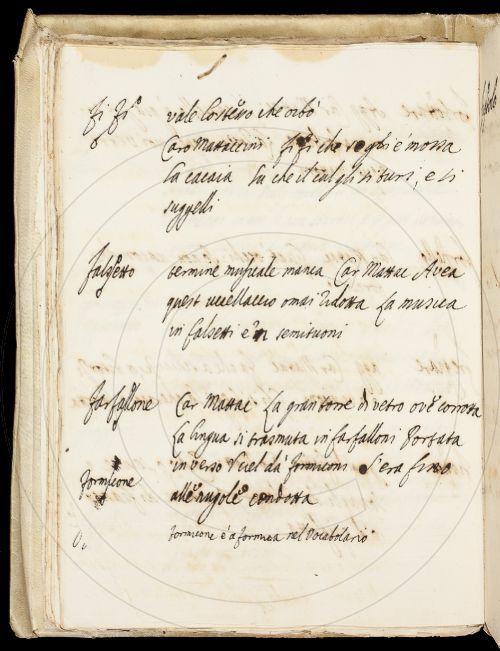 fi fi° vale lo stesso che oibó
Caro Mattaccini fi fi che se gli é mossa
la cacaia su che il cul gli si turi, e si
suggelli
falsetto termine musicale manca Car Mattac Avea
quest uccellaccio omai ridotta La musica
in falsetti e in semituoni
farfallone Car Mattac La gran torre di vetro ov'é corrotta
La lingua si trasmuta in farfalloni Portata
formicone inverso il ciel da formiconi S'era fino
alle nugole condotta
formicone é a formica nel Vocabolario